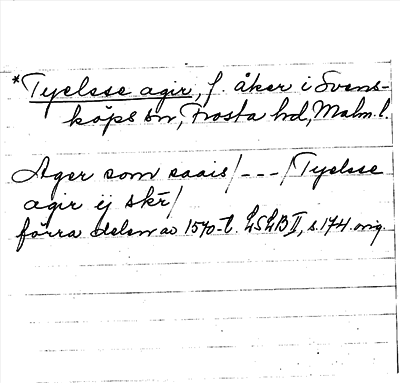 *Tyelsse agir, f. åker i Svens-
köps sn, Frosta hd, Malm.l.
Ager som saais/---/Tyelsse
agir ij skr/
förra delen av 1570-t. LSLB II, s. 174. orig.